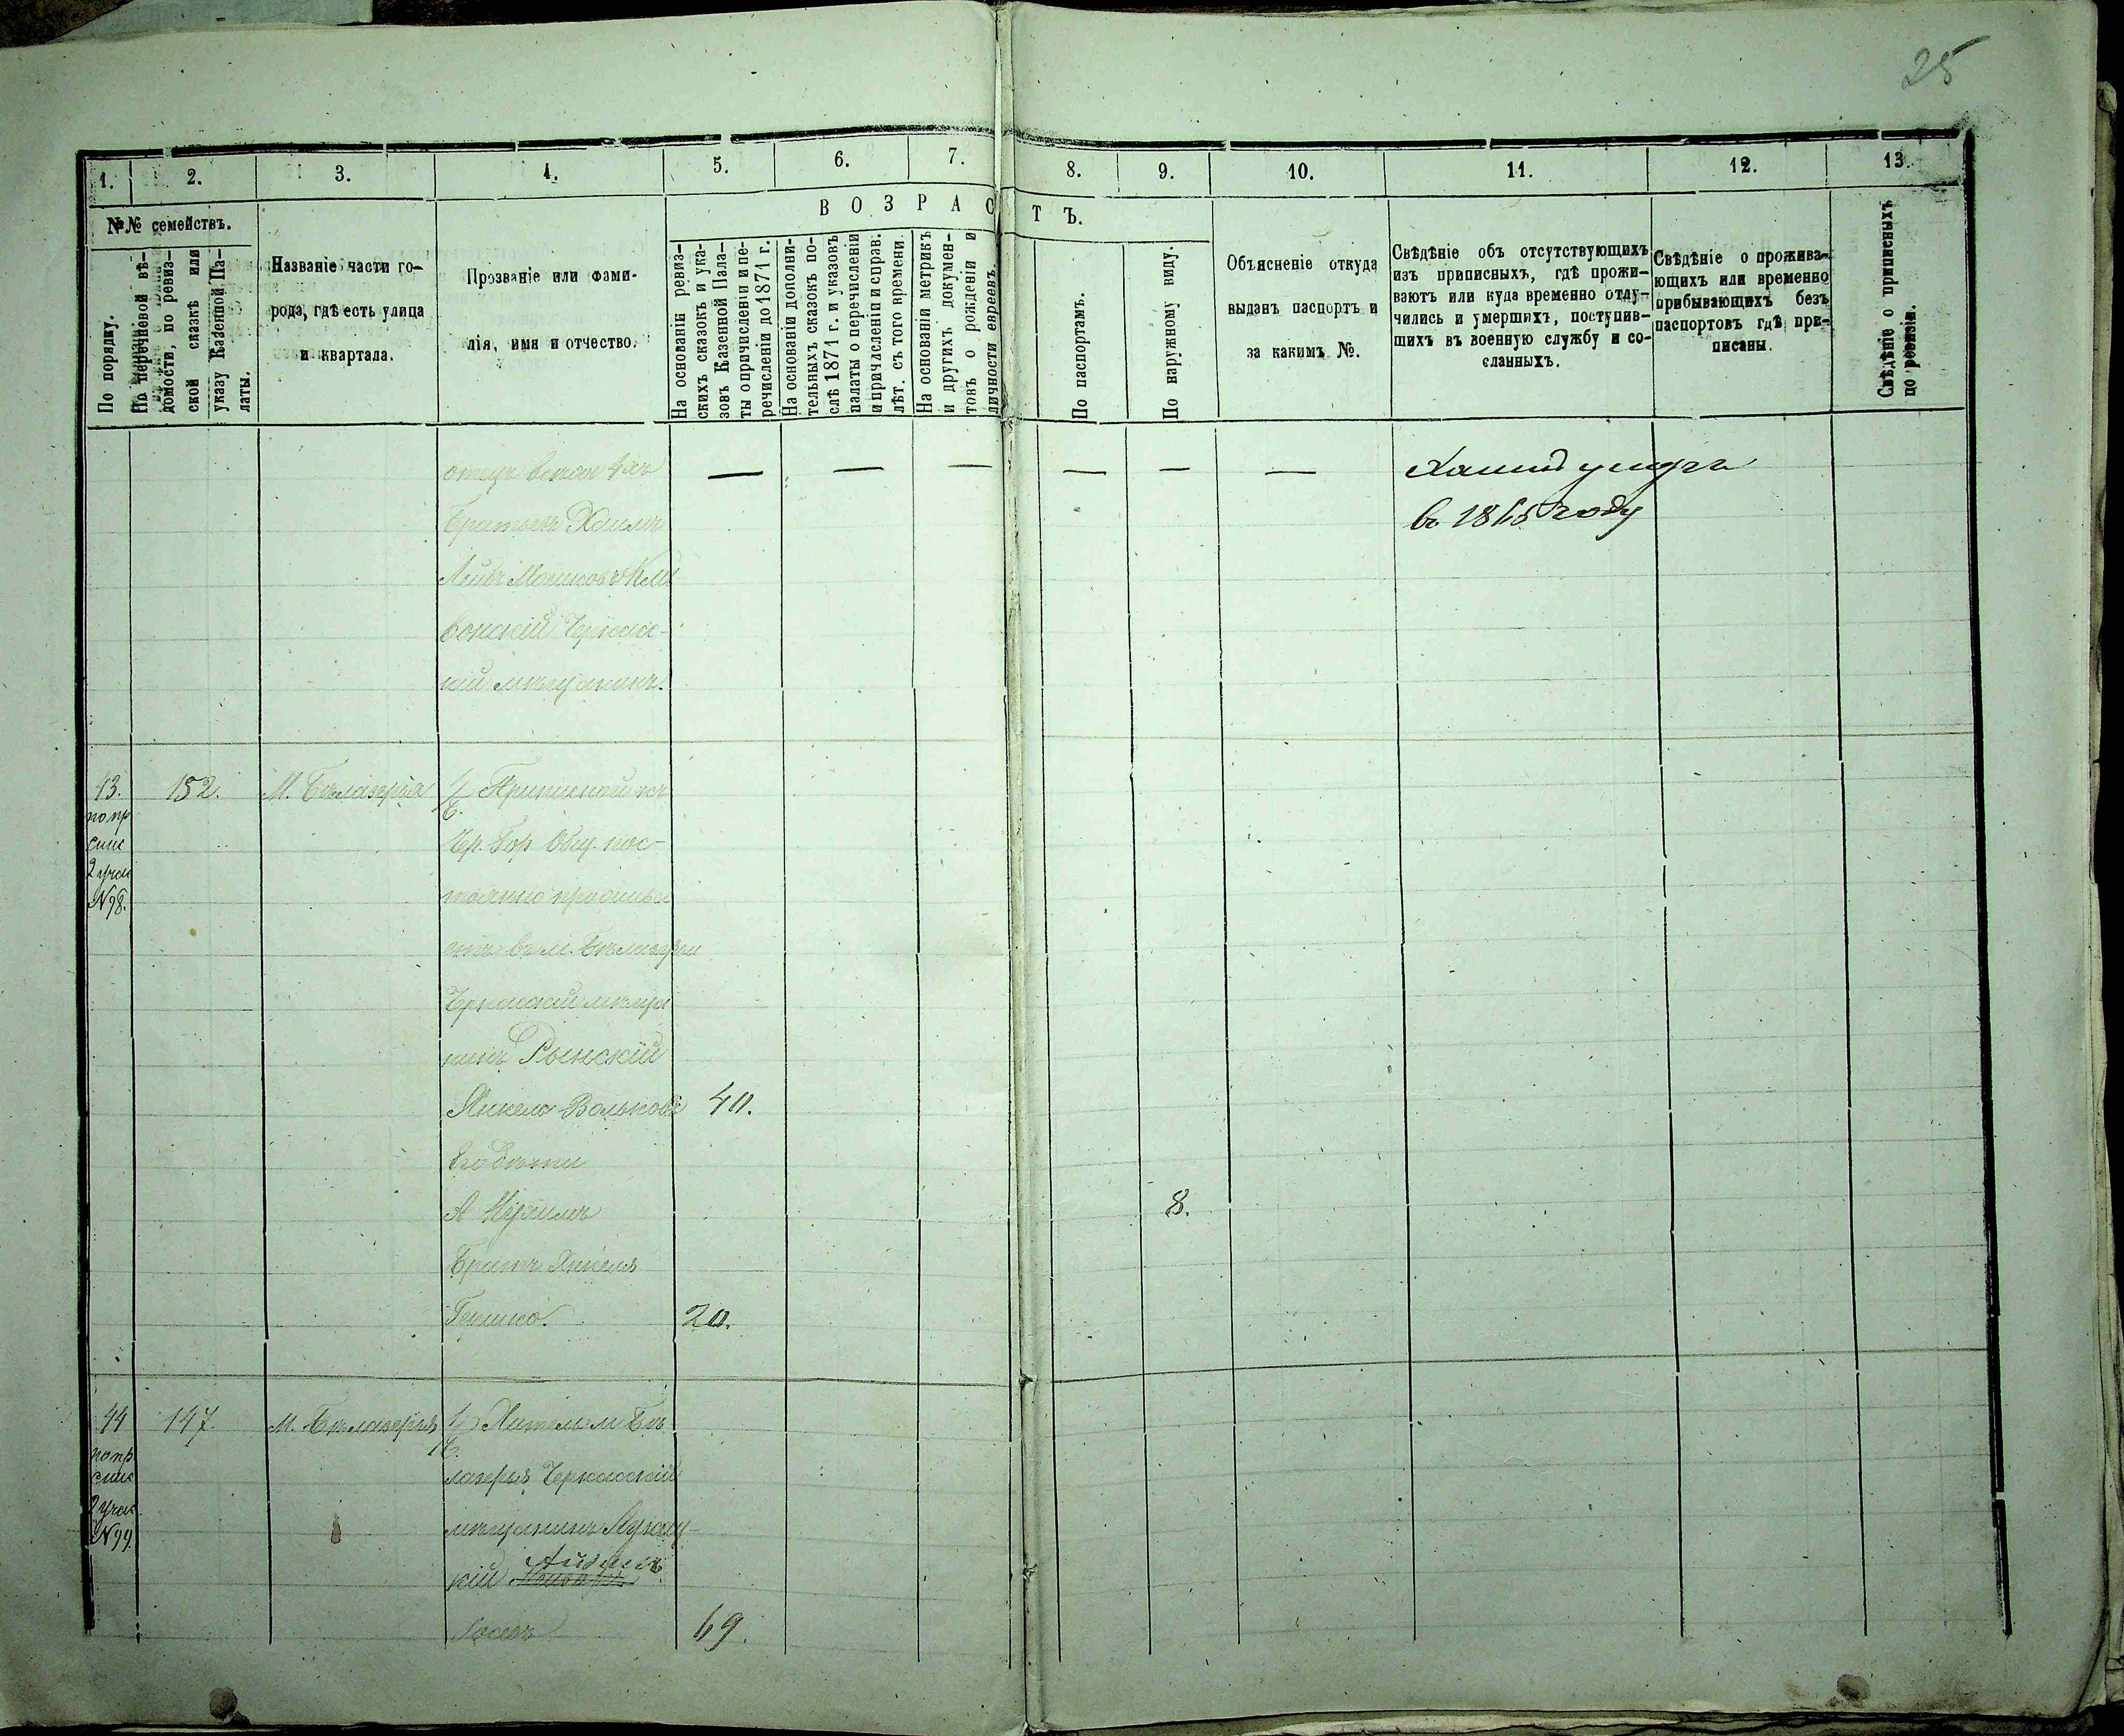 25
1. 2. 3. 4. 5. 6. 7. 8. 9. 10. 11. 12. 13.
№№ семействъ.
По порядку.
По перечневой вѣ-
домости, по ревиз-
ской сказкѣ или
указу Казенной Па-
латы.
Названіе части го-
рода, гдѣ есть улица
и квартала.
Прозваніе или фами-
лія, имя и отчество.
ВОЗРАСТЪ.
На основаніи ревиз-
скихъ сказокъ и ука-
зовъ Казенной Пала-
ты о причисленіи и пе-
речисленіи до 1871 г.
На основаніи дополни-
тельныхъ сказокъ по-
слѣ 1871 г. и указовъ
палаты о перечисленіи
и причисленіи и справ.
лѣт. съ того времени.
На основаніи метрикъ
и другихъ докумен-
товъ о рожденіи и
личности евреевъ.
По паспортамъ.
По наружному виду.
Объясненіе откуда
выданъ паспортъ и
за какимъ №.
Свѣдѣніе объ отсутствующихъ
изъ приписныхъ, гдѣ прожи-
ваютъ или куда временно отлу-
чились и умершихъ, поступив-
шихъ въ военную службу и со-
сланныхъ.
Свѣдѣніе о прожива-
ющихъ или временно
прибывающихъ безъ
паспортовъ гдѣ при-
писаны.
Свѣдѣніе о приписныхъ
по ревизіи.
отецъ
— — — — — —
умеръ
Хаимъ
въ году
Лейбъ Мошковъ
Черкасс-
кій мѣщанинъ.
43. 152. М. Бѣлазерья Приписной къ
по пр
спис
2 учас
N98.
Чр. Гор. Общ. пос-
тоянно прожива
етъ въ м. Бѣлазерьи
Черкасскій мѣща
нинъ Рынскій
Янкель Вольковъ 40.
Его дѣти
А Нухимъ 8.
Братъ Янкеля
Гершко. 20.
44 147. М. Бѣлазерья Житель м Бѣ
по пр
спис
2 учас
N99.
лазерья Черкасскій
мѣщанинъ
кій
69.